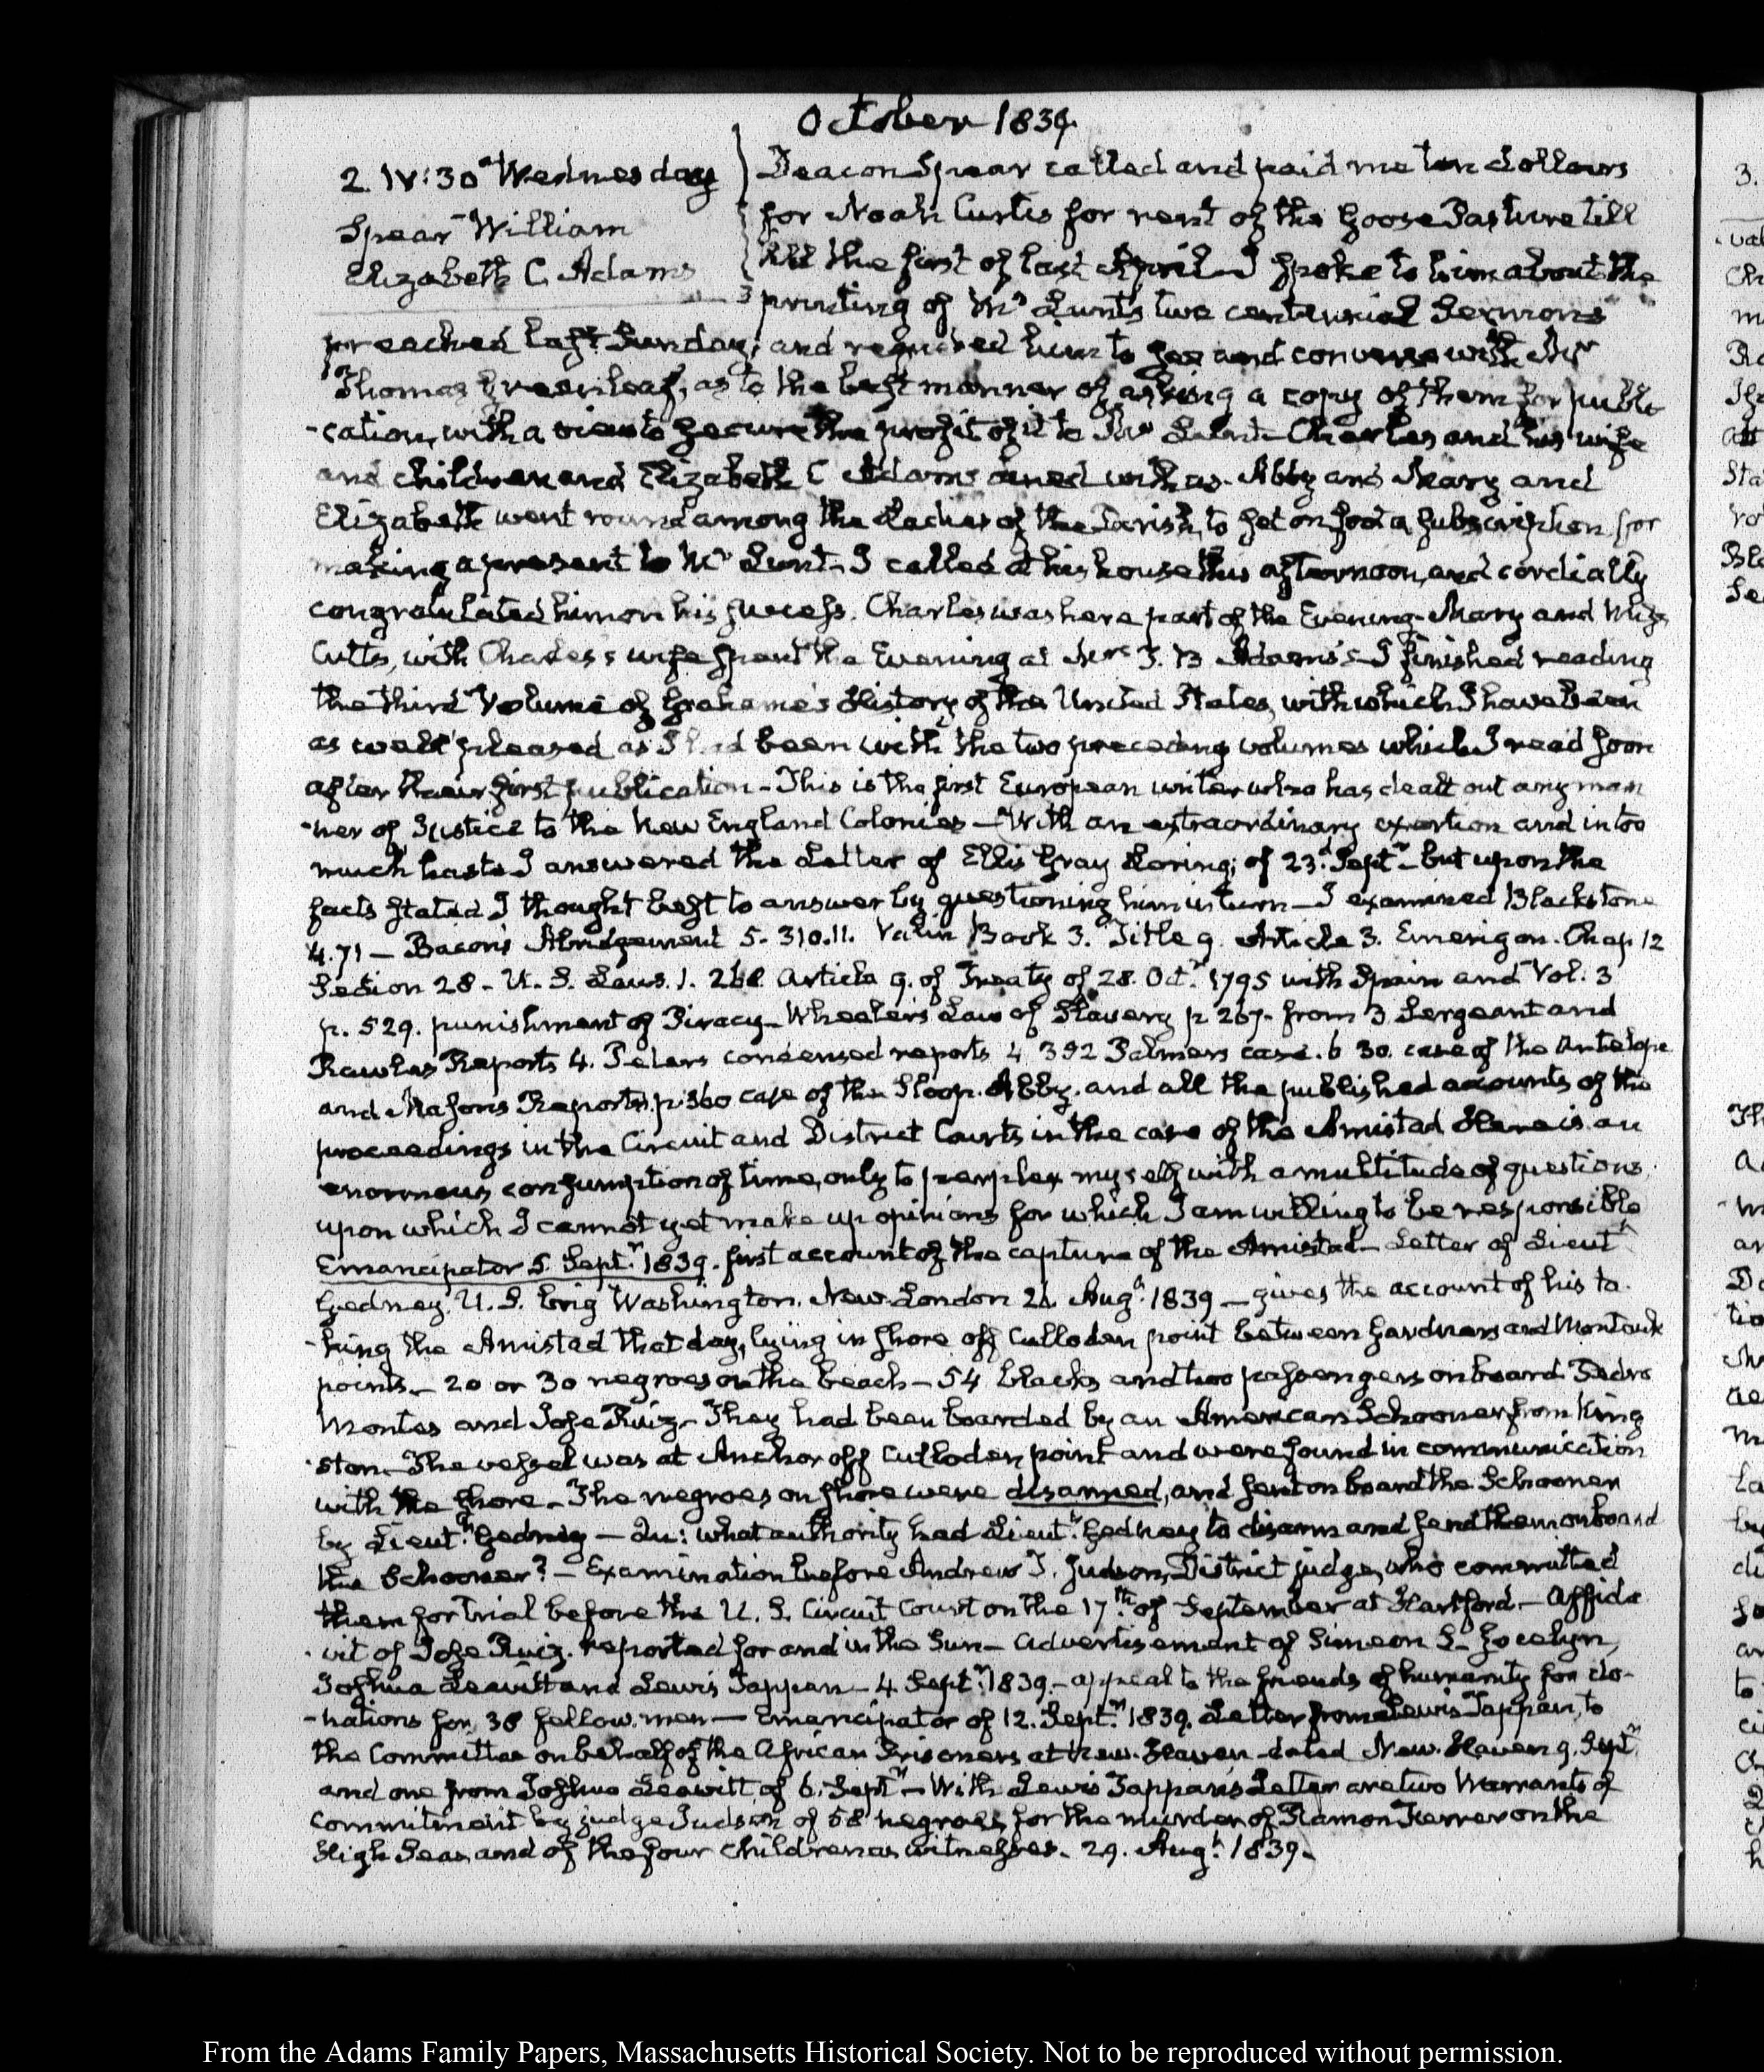 October 1839.
2. IV:30 Wednesday
Spear William
Elizabeth C. Adams
Deacon Spear called and paid me ten dollars
for Noah Curtis for rent of the Goose Pasture till
the first of last April. I spoke to him about the
printing of Mr Lunt's two centurial Sermons
preached last Sunday; and requested him to see and converse with Mr
Thomas Greenleaf, as to the best manner of asking a copy of them for publi
-cation, with a view to secure the profit of it to Mr Lunt- Charles and his wife
and children and Elizabeth C Adams dined with us. Abby and Mary and
Elizabeth went round among the Ladies of the Parish, to set on foot a subscription for
making a present to Mr Lunt- I called at his house this afternoon, and cordially
congratulated him on his success. Charles was here part of the Evening- Mary and Miss
Cutts, with Charles's wife spent the Evening at Mrs T. B Adams's- I finished reading
the third Volume of Grahame's History of the United States, with which I have been
as well pleased as I had been with the two preceding volumes which I read soon
after their first publication- This is the first European writer who has dealt out any man
-ner of Justice to the New England Colonies- With an extraordinary exertion and in too
much haste I answered the Letter of Ellis Gray Loring; of 23d Septr- but upon the
facts stated I thought best to answer by questioning him in turn- I examined Blackstone
4.71- Bacon's Abridgement 5. 310.11. Valin Book 3. Title 9. Article 3. Emerigon. Chap 12
Section 28- U. S. Laws. 1. 268. Article 9. of Treaty of 28. Octr 1795 with Spain and Vol. 3
p. 529. punishment of Piracy- Wheeler's Law of Slavery p 267- from 3 Sergeant and
Rawles Reports 4. Peters condensed reports 4 392 Palmers case. 6 30. case of the Antelope
and Masons Reports. p. 360 case of the Sloop. Abby. and all the published accounts of the
proceedings in the Circuit and District Courts in the case of the Amistad Here is an
enormous consumption of time, only to perplex myself with a multitude of questions
upon which I cannot yet make up opinions for which I am willing to be responsible
Emancipator 5. Septr 1839. first account of the capture of the Amistad- Letter of Lieut
Gedney. U. S. brig Washington. New London 26. Augt 1839- gives the account of his ta-
-king the Amistad that day, lying in shore off Culloden point between Gardners and Montauk
points- 20 or 30 negroes on the beach- 54 blacks and two passengers on board Pedro
Montes and Jose Ruiz- They had been boarded by an American Schooner from King
-ston- The vessel was at Anchor off Culloden point and were found in communication
with the shore- The negroes on shore were disarmed, and sent on board the Schooner
by Lieut. Gedney- Qu: what authority had Lieut. Gedney to disarm and send them on board
the Schooner?- Examination before Andrew T. Judson, District judge, who committed
them for trial before the U. S. Circuit Court on the 17th of September at Hartford- Affida
-vit of Jose Ruiz. reported for and in the Sun- Advertisement of Simeon S. Jocelyn,
Joshua Leavitt and Lewis Tappan- 4 Septr 1839.- appeal to the friends of humanity for do-
-nations for 38 fellow-men- Emancipator of 12. Septr 1839. Letter from Lewis Tappan, to
the Committee on behalf of the African Prisoners at New-Haven- dated New-Haven 9. Septr
and one from Joshua Leavitt of 6. Septr- With Lewis Tappan's Letter are two Warrants of
commitment by judge Judson of 58 negroes for the murder of Ramon Ferrer on the
High Seas, and of the four children as witnesses- 29. Augt 1839.
From the Adams Family Papers, Massachusetts Historical Society. Not to be reproduced without permission.